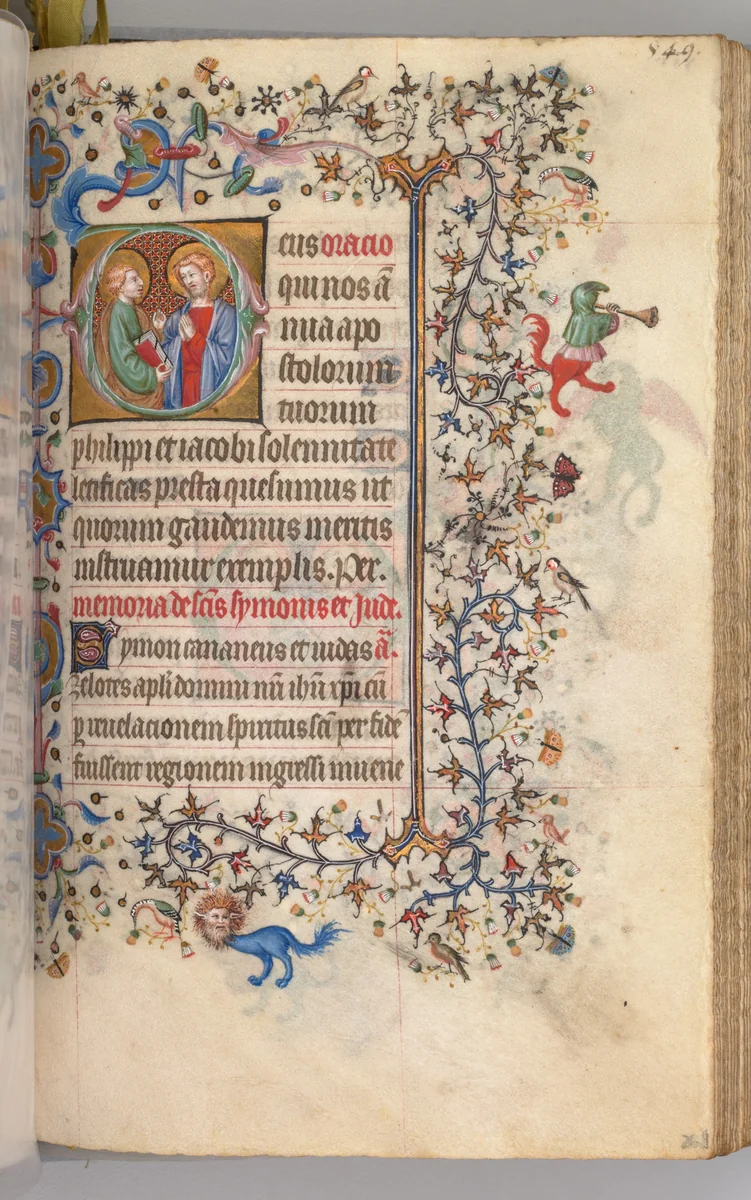 549.
eus oracio
qui nos ā
nua apo
stolorum
tuorum
philippi et iacobi solennitate
letificas presta quesumus ut
quorum gaudemus meritis
instruamur exemplis. Per.
memoria de scīs symonis et Jude.
Symon cananeus et iudas ā.
Zelotes apl̄i domini nr̄i ihū xp̄i cū
ꝑ reuelacionem spiritus scī per fidē
fuissent regionem ingressi inuene